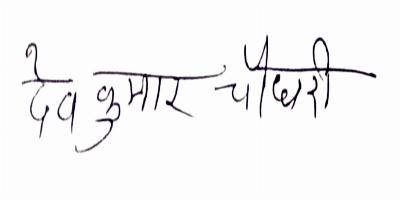 देव कुमार चौधरी